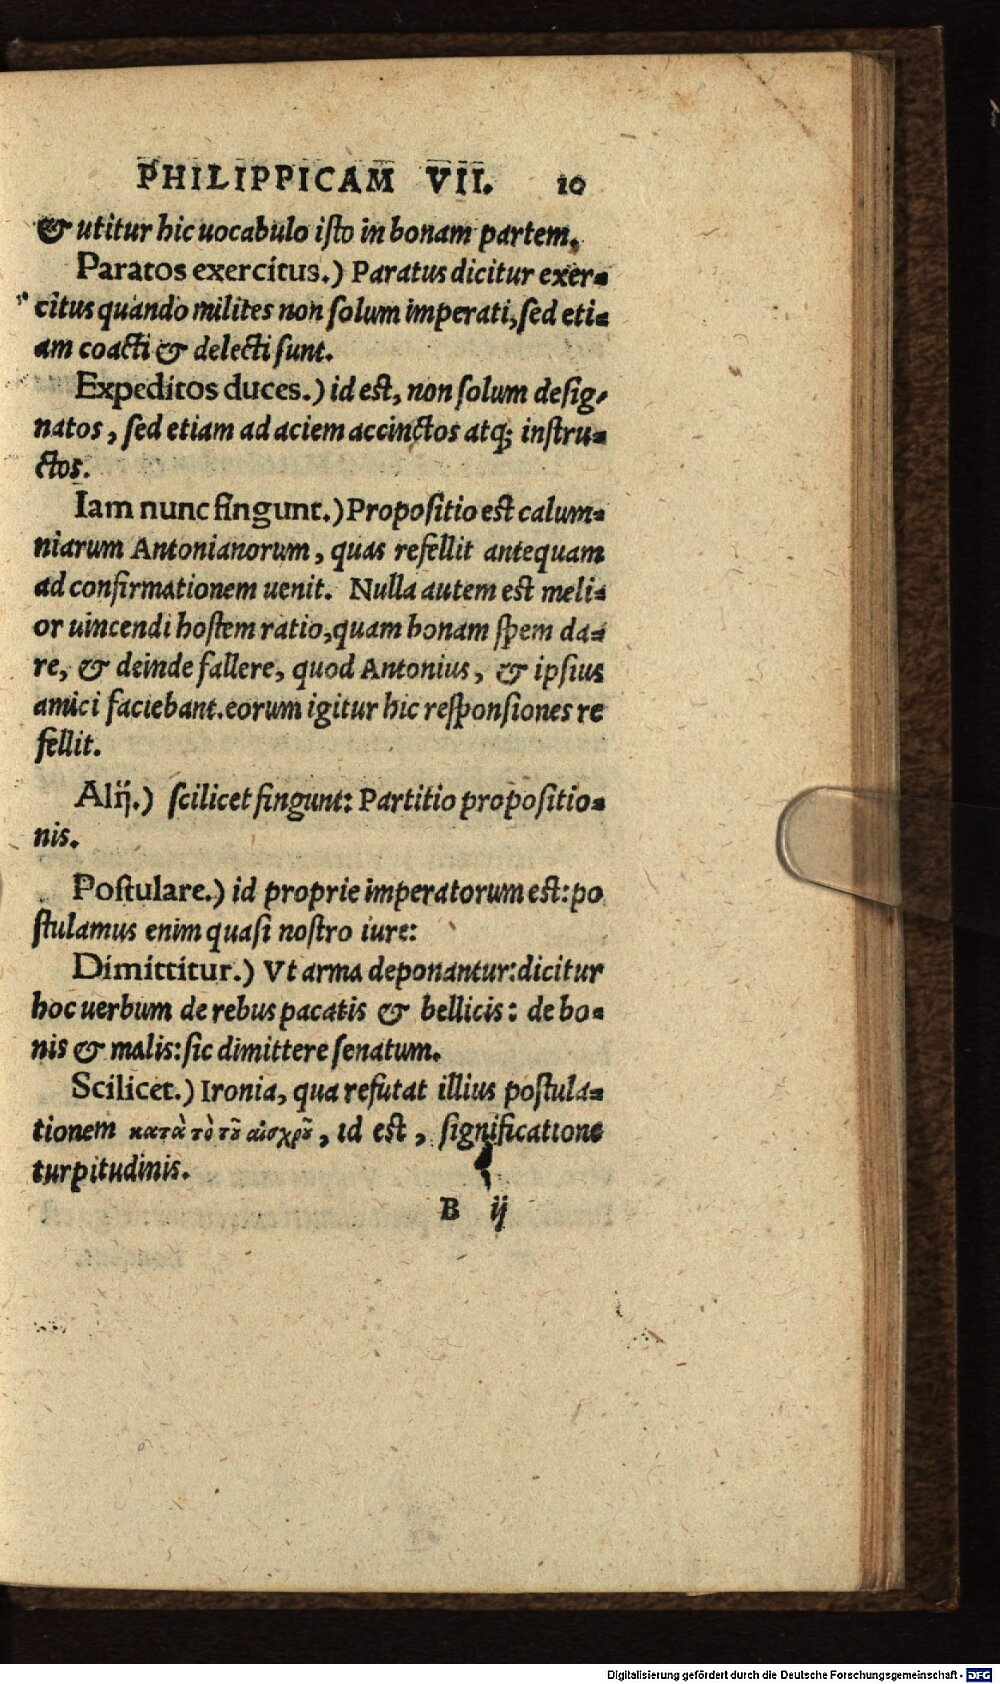 PHILIPPICAM VII. 10
& utitur hic uocabulo iſto in bonam partem.
Paratos exercitus.) Paratus dicitur exer-
citus quando milites non ſolum imperati, ſed eti-
am coacti & delecti ſunt.
Expeditos duces.) id eſt, non ſolum deſig-
natos, ſed etiam ad aciem accinctos atq; inſtru-
ctos.
Iam nunc fingunt.) Propoſitio eſt calum-
niarum Antonianorum, quas refellit antequam
ad confirmationem uenit. Nulla autem eſt meli-
or uincendi hoſtem ratio, quam bonam ſpem da-
re, & deinde fallere, quod Antonius, & ipſius
amici faciebant. eorum igitur hic reſponſiones re
fellit.
Alij.) ſcilicet fingunt: Partitio propoſitio-
nis.
Poſtulare.) id proprie imperatorum eſt: po
ſtulamus enim quaſi noſtro iure:
Dimittitur.) Vt arma deponantur: dicitur
hoc uerbum de rebus pacatis & bellicis: de bo-
nis & malis: ſic dimittere ſenatum.
Scilicet.) Ironia, qua refutat illius poſtula-
tionem κατὰ τὸ τȣ͂ αἰσχρȣ͂, id eſt, ſignificatione
turpitudinis.
B ij
Digitalisierung gefördert durch die Deutsche Forschungsgemeinschaft - DFG